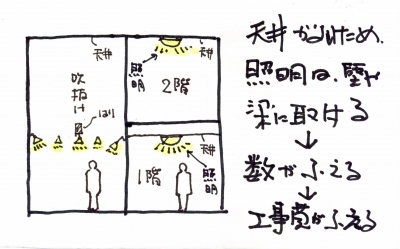 天井
天井
照明
2階
吹抜け
はり
天井
1階
照明
天井がないため、
照明は、壁や
梁に取ける
↓
数がふえる
↓
工事費がふえる